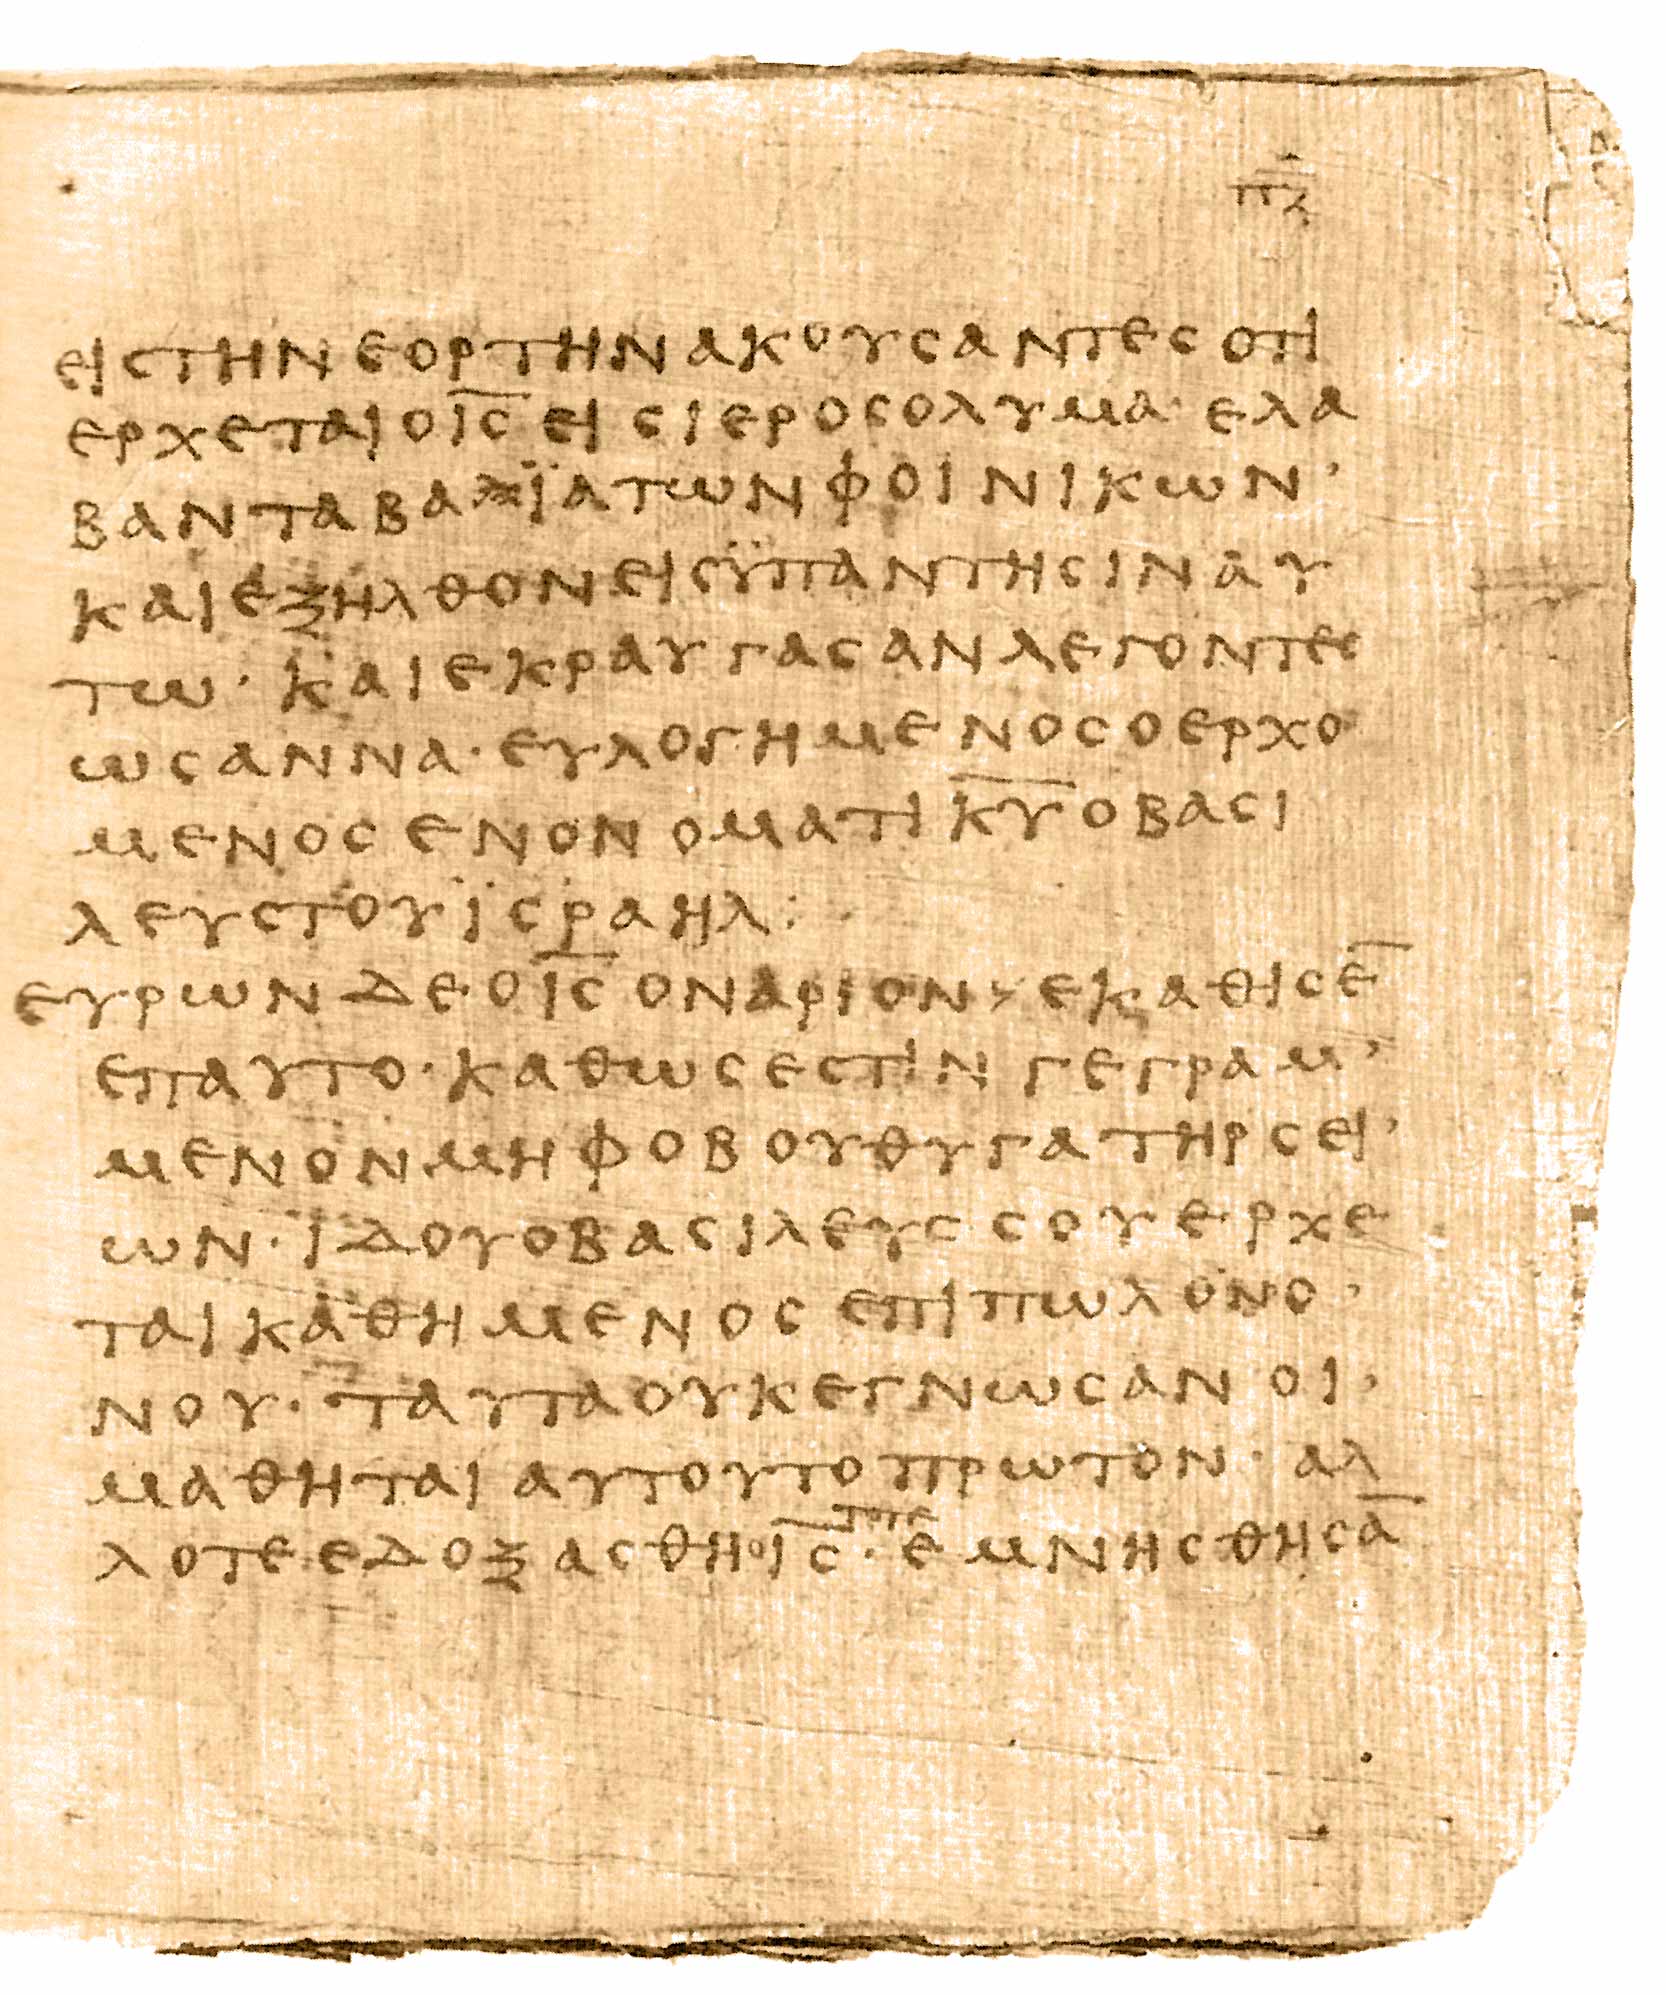 π̅ζ̅
ειστηνεορτηνακουσαντεσοτι
ερχεταιοι̅ς̅εισιεροσολυμα· ελα
βανταβαϊατωνφοινικων·
καιεξηλθονεισϋπαντησιναυ
τω· καιεκραυγασανλεγοντες
ωσαννα· ευλογημενοσοερχο
μενοσενονοματικ̅υ̅οβασι
λευστουϊσραηλ:
ευρωνδεοι̅ς̅οναριον, εκαθισε̅
επαυτο· καθωσεστινγεγραμ'
μενονμηφοβουθυγατηρσει·
ων· ϊδουοβασιλευσσουερχε
ταικαθημενοσεπιπωλονο·
νου· ταυταουκεγνωσανοι·
μαθηταιαυτουτοπρωτον· αλ
τοτε
λοτεεδοξασθηοι̅ς̅· εμνησθησα̅